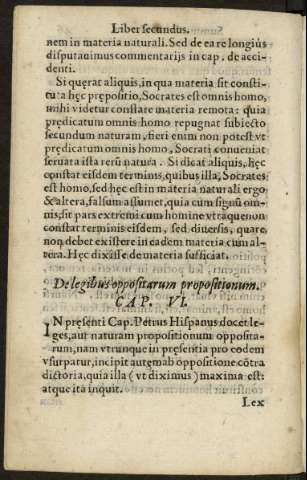 Liber secundus.
nem in materia naturali. Sed de ea re longiùs
disputauimus commentarijs in cap. de acci-
denti.
Si quęrat aliquis, in qua materia sit consti-
tuta hęc prępositio, Socrates est omnis homo,
mihi videtur constare materia remota: quia
prędicatum omnis homo repugnat subiecto
secundum naturam, fieri enim non potest vt
prędicatum omnis homo, Socrati conueniat
seruata ista rerũ natura. Si dicat aliquis, hęc
constat eisdem terminis, quibus illa, Socrates
est homo, sed hęc est in materia naturali ergo
& altera, falsum assumet, quia cum signũ om-
nis, sit pars extremi cum homine vtraque non
constat terminis eisdem, sed diuersis, quare
non debet existere in eadem materia cum al-
tera. Hęc dixisse de materia sufficiat.
De legibus oppositarum propositionum.
CAP. VI.
IN pręsenti Cap. Petrus Hispanus docet le-
ges, aut naturam propositionum opposita-
rum, nam vtrunque in pręsentia pro eodem
vsurpatur, incipit autem ab oppositione cõtra
dictoria, quia illa (vt diximus) maxima est:
atque ita inquit.
Lex